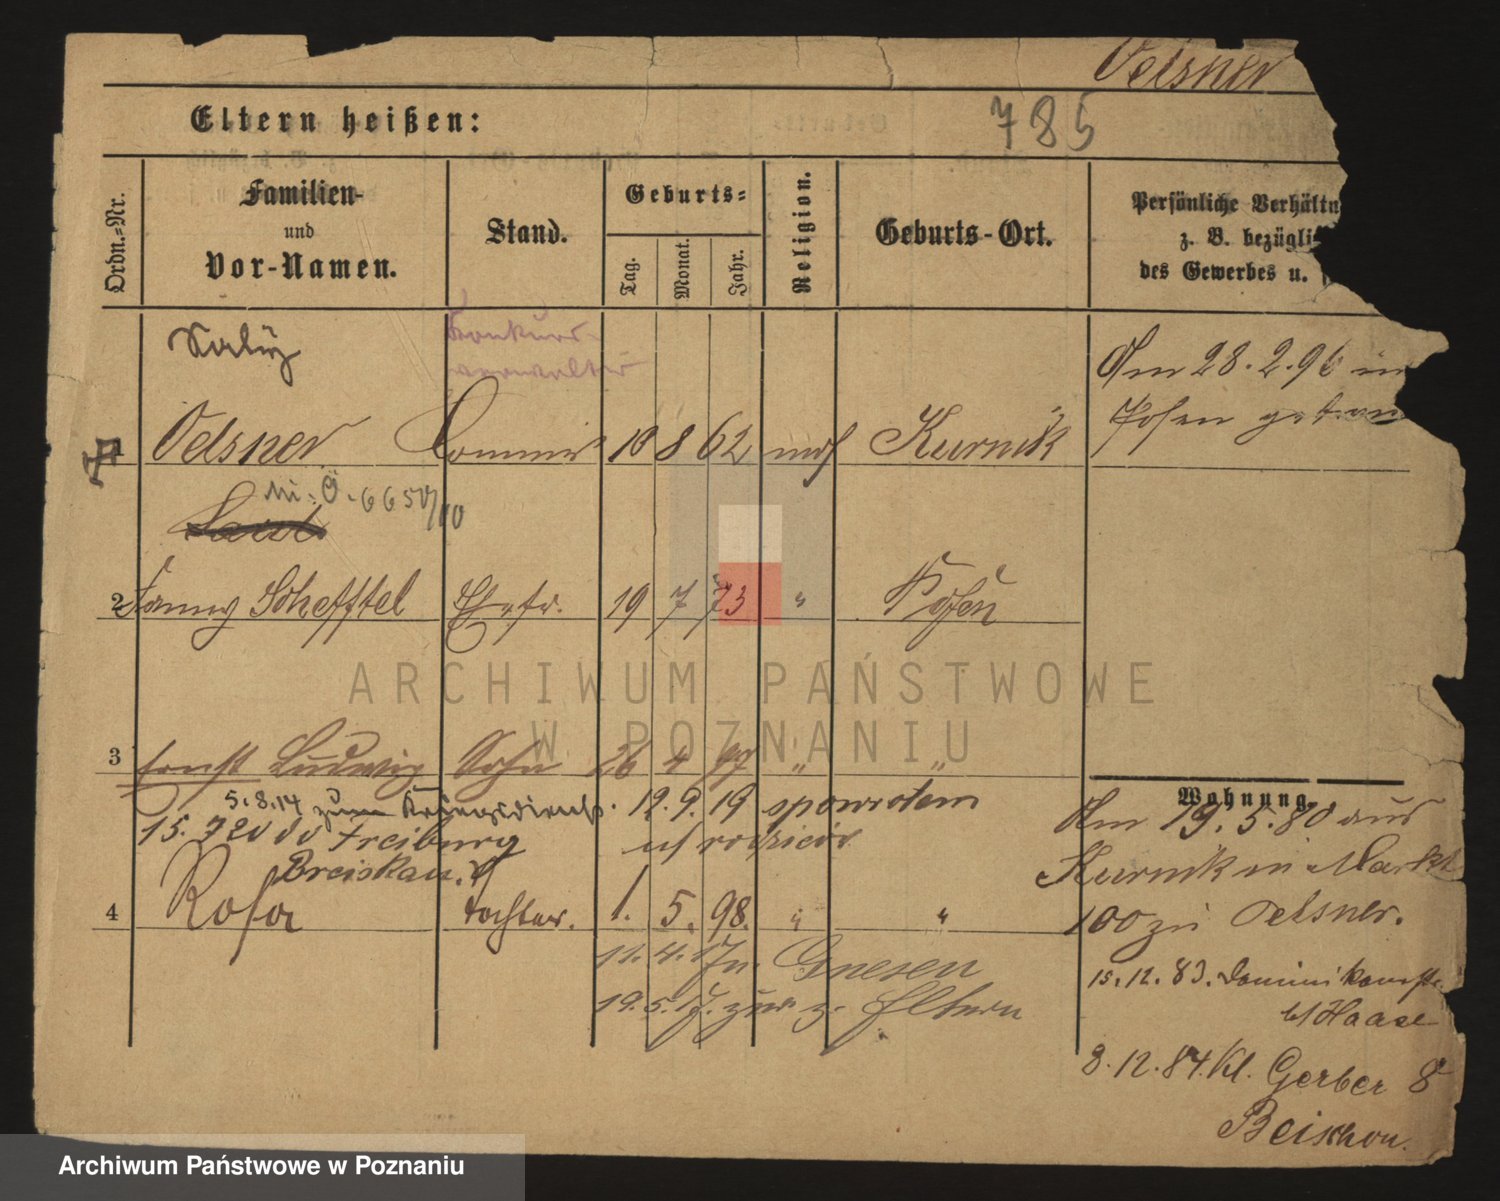 Oelsner
Eltern heißen:
785
Ordn.-Nr.
Familien-
und
Vor-Namen.
Stand.
Geburts-
Tag.
Monat.
Jahr.
Religion.
Geburts-Ort.
Persönliche Verhältn
z. B. bezügli
des Gewerbes u.
Konkurs-
verwalter
Am 28.2.96 in
Posen
1 Oelsner Commis 10 8 62 mos Kurnik
2 Fanny Scheftel Ehefr. 19 7 73 " Posen
ARCHIWUM PAŃSTWOWE
W POZNANIU
3 Ernst Ludwig Sohn 26 4 97 " "
5.8.14 zum Kriegsdienst. 12.9.19 spowrotem
15. 7 20 do Freiburg
Breiskau.
4 Rosa Tochter. 1. 5. 98. " "
11.4.17 n. Gnesen
19.5.17. zur z. Eltern
Wohnung.
Am 19.5.80 aus
Kurnik in Markt
100 zu Oelsner.
15.12.83. Dominikanerstr.
b/ Haase
8.12.84. Kl. Gerber 8
Archiwum Państwowe w Poznaniu